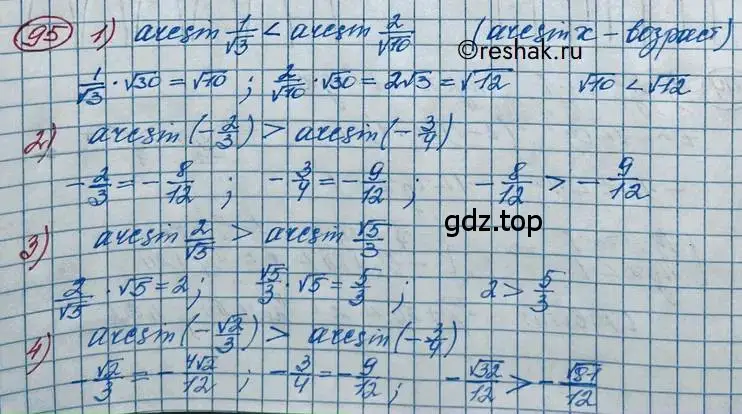 95 1) arcsin 1/√3 < arcsin 2/√10 (arcsin x – возраст)
©reshak.ru
1/√3 · √30 = √10 ; 2/√10 · √30 = 2√3 = √12 √10 < √12
2) arcsin (-2/3) > arcsin (-3/4)
-2/3 = -8/12 ; -3/4 = -9/12 ; -8/12 > -9/12
gdz.top
3) arcsin 2/√5 > arcsin √5/3
2/√5 · √5 = 2 ; √5/3 · √5 = 5/3 ; 2 > 5/3
4) arcsin (-√2/3) > arcsin (-3/4)
-√2/3 = -4√2/12 ; -3/4 = -9/12 ; -√32/12 > -√81/12